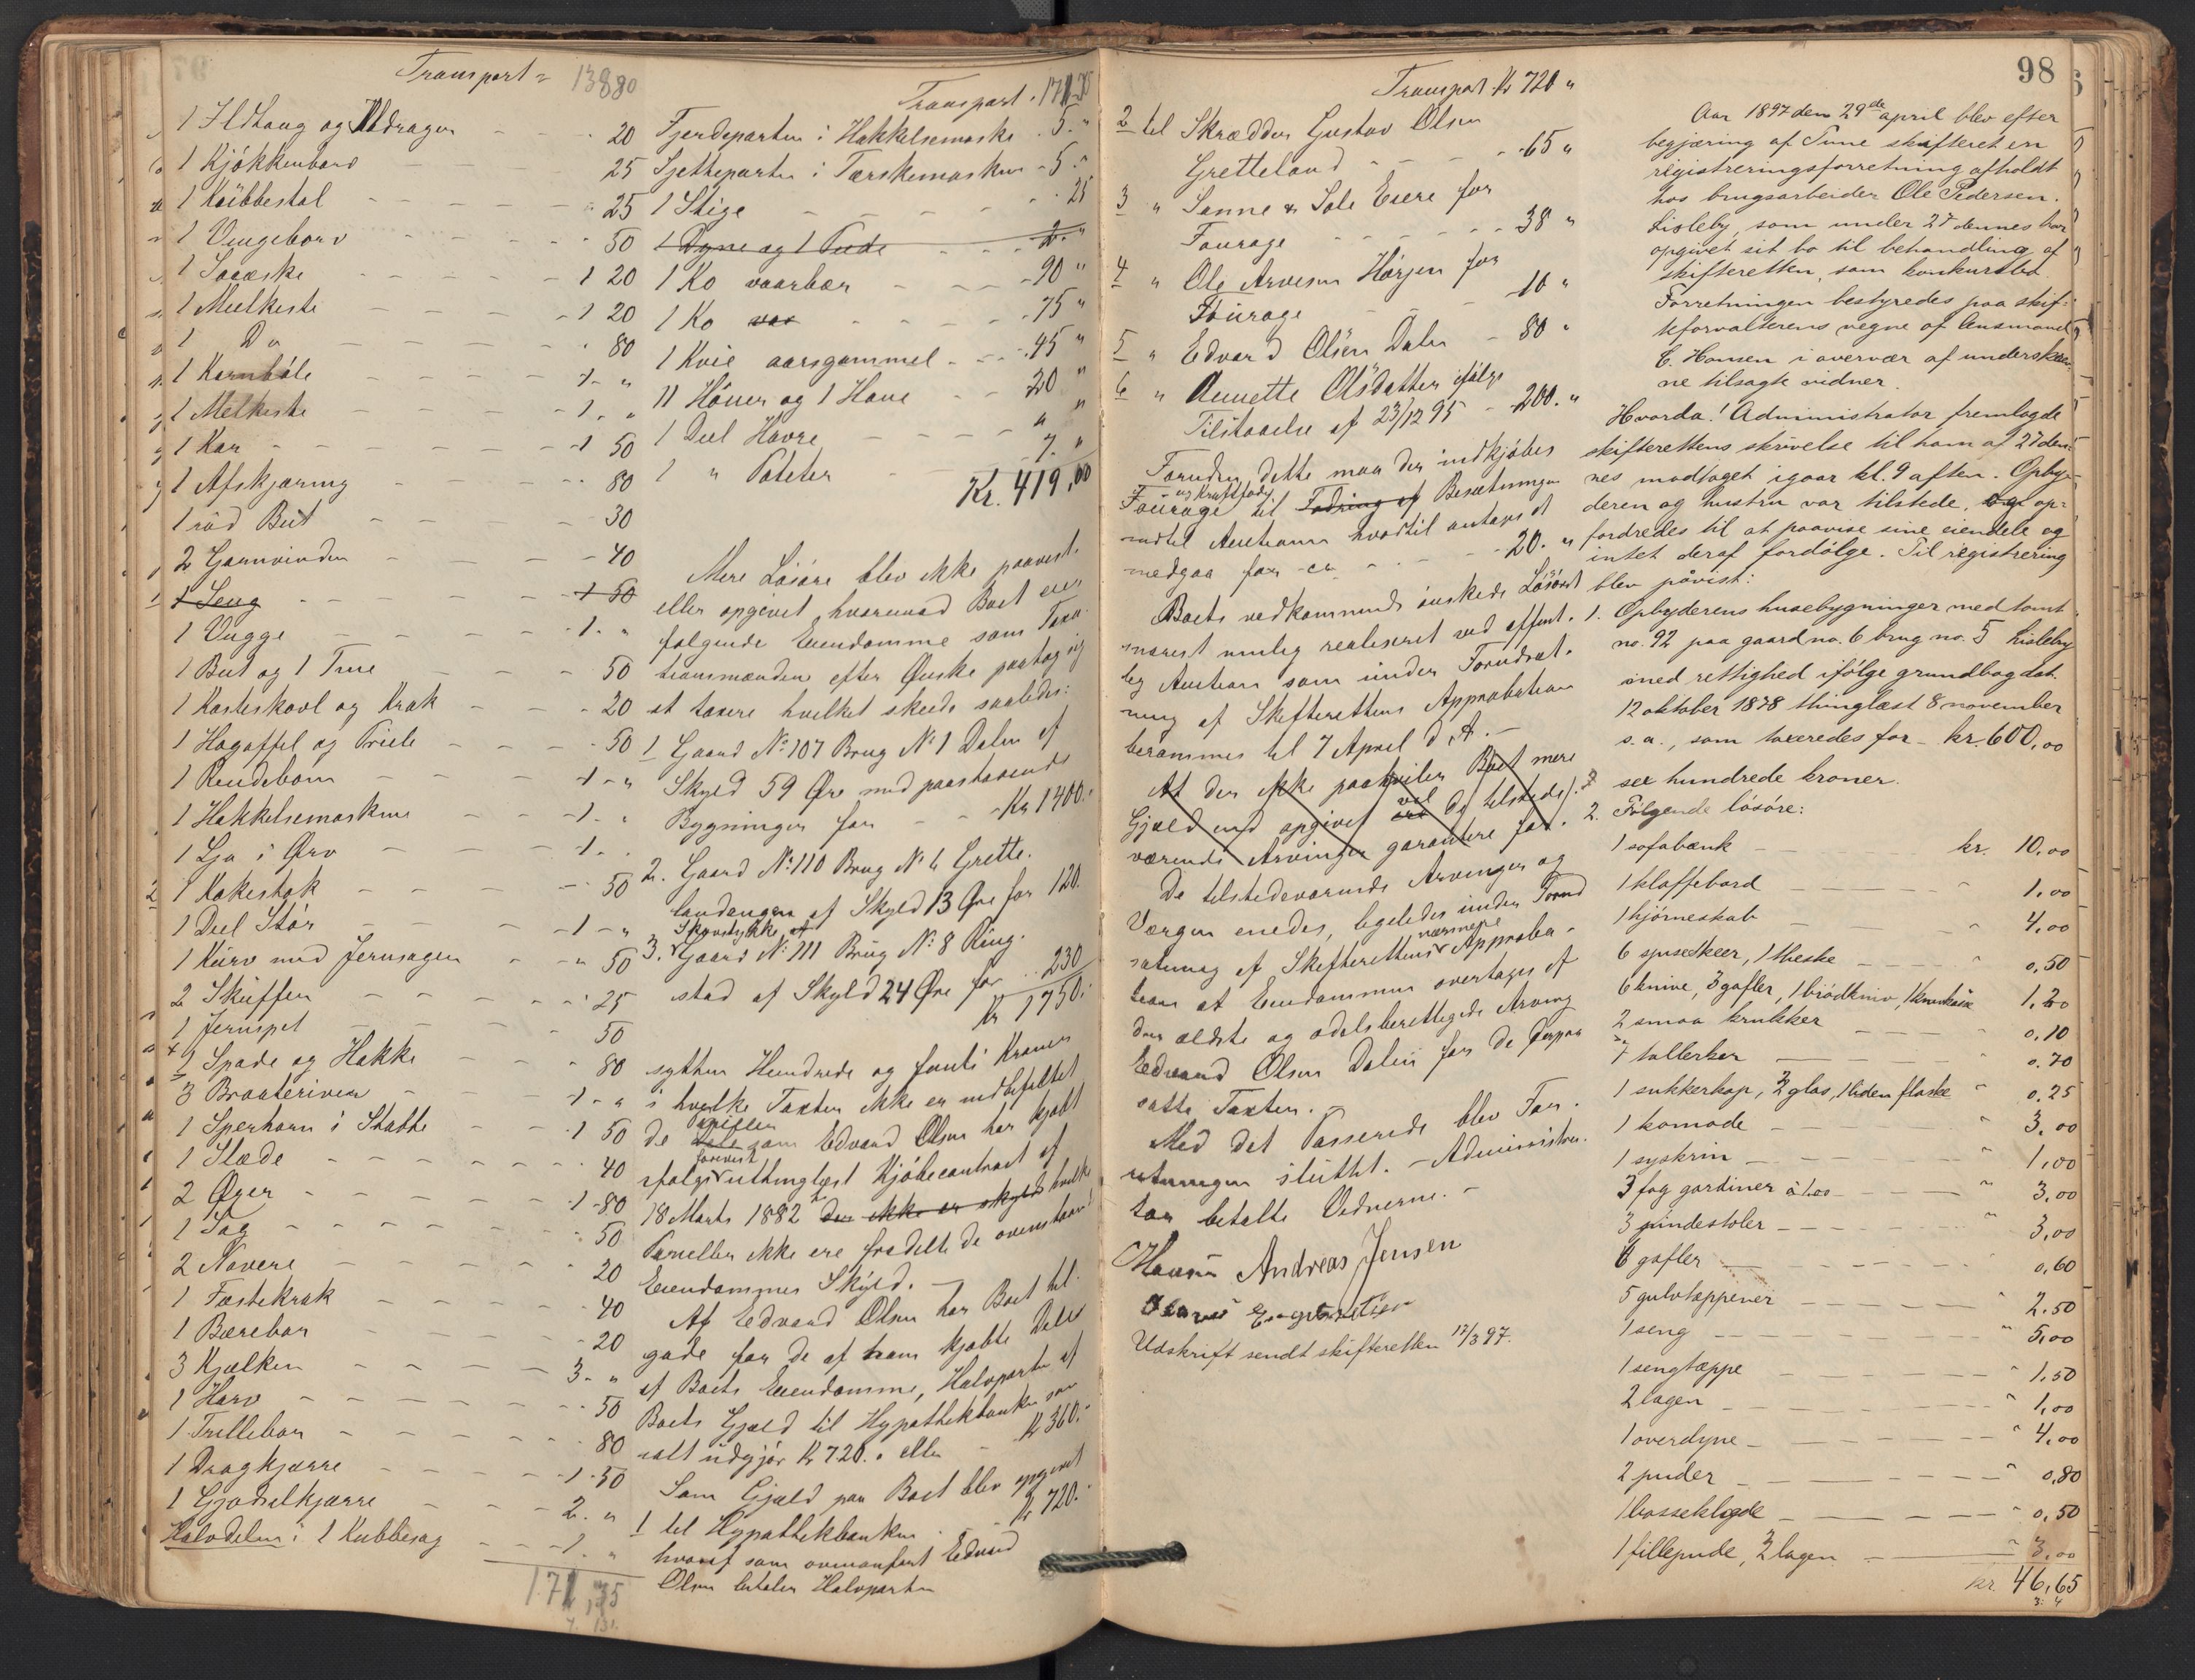 Transport = 13880
1 Ildtang og Ildrager - - 20
1 Kjökkenbord - - 25
1 Kubbestol - - - - 25
1 Vengebord - - - - 50
1 - - - - 1 20
1 Melkeste - - - - 1 20
1 Do - - - - 80
1 - - - - 1 - "
1 Melkeste - - - - 1 - "
1 Kar - - - - 1 50
1 Afskjæring - - - 80
1 röd But - - - 30
2 Garnvinder - - - 40
1 Seng - - - - 1 50
1 Vugge - - - - 1. "
1 But og 1 True - - - 50
1 Kasteskovl og Krak - - - 20
1 Høgaffel og - - - 50
1 - - - - 1 - "
1 Hakkelsemaskine - - 1. "
1 Lja i Orv - - - 1. "
1 Kakestak - - - 50
1 Deel Stör - - - 1 - "
1 Kurv med Jernsager - - " 50
2 Skuffer - - - - 25
1 Jernspet - - - - 50
1 Spade og Hakke - - - 80
3 Braateriver - - - 1 - "
1 Sperhorn i Stabbe - - 1 50
1 Slæde - - - - 40
2 Öxer - - - - 1 - 80
1 Sag - - - - 50
2 Navere - - - - 20
1 Fæstekrak - - - - 40
1 Bærebør - - - - 20
3 Kjælker - - - - 3. "
1 Harv - - - - 50
1 Trillebør - - - - 80
1 Dragkjærre - - - - 1 - 50
1 Gjødselkjærre - - - 2. "
Halvdelen i 1 Kubbesag - - - 1. "
171,35
Transport. 171.35
Fjerdeparten i Hakkelsemaskine . 5. "
Sjetteparten i Tærskemaskine - 5. "
1 Stige - - - - 25
1 Dyne og 1 Pude - - - 2. "
1 Ko vaarbær - - - 90 "
1 Ko - - - - 75 "
1 Kvie aarsgammel - - - 45 "
11 Höner og 1 Hane - - 20 "
1 Deel Havre - - - " "
1 " Poteter - - 7. "
Kr. 419,00
Mere Lösöre blev ikke paavist
eller opgivet, hvorimod Boet eier
følgende Eiendomme som Taxa-
tionsmænden efter Ønske paatog sig
at taxere hvilket skeede saaledes:
1 Gaard No 107 Brug No 1 Dalen af
Skyld 59 Øre med paastaaende
Bygninger for - - Kr 1400."
2. Gaard No 110 Brug No 6 Grette-
landengen af Skyld 13 Øre for 120.
Skovstykke af
3. Gaard No 111 Brug No 8 Ring-
stad af Skyld 24 Øre for .. 230
Kr 1750."
sytten Hundrede og femti Kroner
i hvilke Taxter ikke er indbefattet
de som Edvard Olsen har kjøbt
ifølge uthinglæst Kjöbecontract af
18 Marts 1882 der ikke er skyld hvilke
Parceller ikke ere fradelte de ovenstaaende
Eiendommes Skyld. -
Af Edvard Olsen har Boet til-
gode for de af ham kjøbte Dele
af Boets Eiendomme, Halvparten af
Boets Gjæld til Hypothekbanken som
ialt udgjör Kr 720. " eller - Kr 360."
Som Gjæld paa Boet blev opgivet
1 til Hypothekbanken - - Kr 720."
hvoraf som ovenanført Edvard
Olsen betaler Halvparten
Transport Kr 720 "
2 til Skrædder Gustav Olsen
Gretteland - - - - 65 "
3 " Sanne & Soli Eiere for
Fourage - - - - 38 "
4 " Ole Arvesen for
Fourage - - - 10 "
5 " Edvard Olsen Dalen - 80 "
6 " Annette Olsdatter ifølge
Tilstaaelse af 23/12 95 - 200. "
Foruden dette maa der indkjöbes
og Kraftfoder
Fourage til Fodring af Besætningen
indtil Auctionen hvortil antages at
medgaa for ca - - - 20. "
Boets vedkommende önskede Lösöret
snarest mulig realiseret ved offent-
lig Auction som under Forudsæt-
ning af Skifterettens Approbation
berammes til 7 April d. A. -
At der ikke paahviler Boet mere
Gjæld end opgivet vil De tilstede-
værende Arvinger garantere for.
De tilstedeværende Arvinger og
Værgen enedes, ligeledes under Forud-
sætning af Skifterettens nærmere Approba-
tion at Eiendommene overtages af
den ældste og odelsberettigede Arving
Edvard Olsen Dalen for de derpaa
satte Taxter. -
Med det Passerede blev For-
retningen sluttet. - Administra-
tor betalte Vidnerne. -
Hansen Andreas Jensen
Udskrift sendt skifteretten 12/3 97.
98
Aar 1897 den 29de april blev efter
begjæring af Tune skifteret en
registreringsforretning afholdt
hos brugsarbeider Ole Pedersen.
Lisleby, som under 27 dennes har
opgivet sit bo til behandling af
skifteretten, som konkursbo.
Forretningen bestyredes paa skif-
teforvalterens vegne af lensmand
C. Hansen i overvær af underskrev-
ne tilsagte vidner.
Hvorda! Administrator fremlagde
skifterettens skrivelse til ham af 27 den-
nes modtaget igaar kl. 9 aften. Opby-
deren og hustru var tilstede, og op-
fordredes til at paavise sine eiendele og
intet deraf fordölge. Til registrering
blev påvist:
1. Opbyderens husebygninger med tomt
no. 92 paa gaard no. 6 brug no. 5 Lisleby
med rettighed ifölge grundbog dat.
12 oktober 1878 thinglæst 8 november
s. a., som taxeredes for - kr. 600,00
sex hundrede kroner.
2. Fölgende lösöre:
1 sofabænk - - kr. 10,00
1 klaffebord - - - " 1,00
1 hjörneskab - - - " 4,00
6 spiseskeer, 1 theske - - " 0,50
6 knive, 3 gafler, 1 brödkniv, 1 1,20
2 smaa krukker - - 0,10
7 tallerker - - - " 0,70
1 sukkerkop, 2 glas, 1 liden flaske " 0,25
1 komode - - - " 3,00
1 syskrin - - - " 1,00
3 fag gardiner à 1.00 - - " 3,00
3 pindestoler - - - " 3,00
6 gafler - - - 0,60
5 gulvtæppener - - - " 2.50
1 seng - - - " 5,00
1 sengtæppe - - - " 1,50
2 lagen - - - " 1,00
1 overdyne - - - " 4,00
2 puder - - - " 0,80
1 bosseklæde - - - " 0,50
1 fillepude, 2 lagen - - " 3,00
kr. 46,65